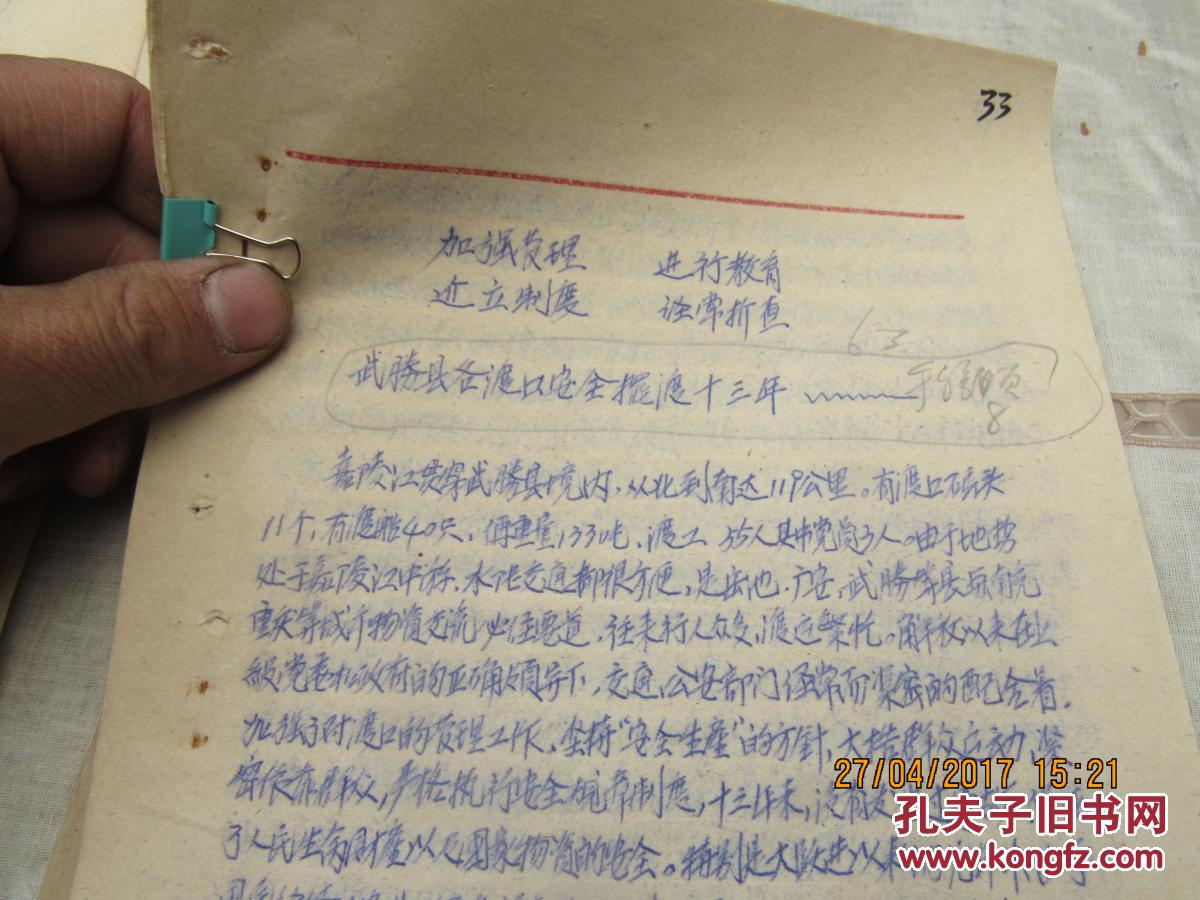 33
加强管理 进行教育
建立制度 经常折查
武勝县各渡口安全摆渡十三年
8
嘉陵江贯穿武勝县境内,从北到南达119公里。有渡口码头
11个,有渡船40只,伸重量133吨,渡工55人其中党员3人。由于地势
处于嘉陵江中游,水陆交通都很方便,是岳池、广安、武勝等县与南充
重庆等城市物资交流必经要道,往来行人众多,渡运繁忙。解放以来在上
级党委和政府的正确领导下,交通、公安部门经常而紧密的配合着。
加强了对渡口的管理工作,坚持"安全生产"的方针,大搞群众运动,紧
密依靠群众,严格执行安全规章制度,十三年来,没有
了人民生命财产以及国家物资的安全。特别是大跃进以来
27/04/2017 15:21
孔夫子旧书网
www.kongfz.com